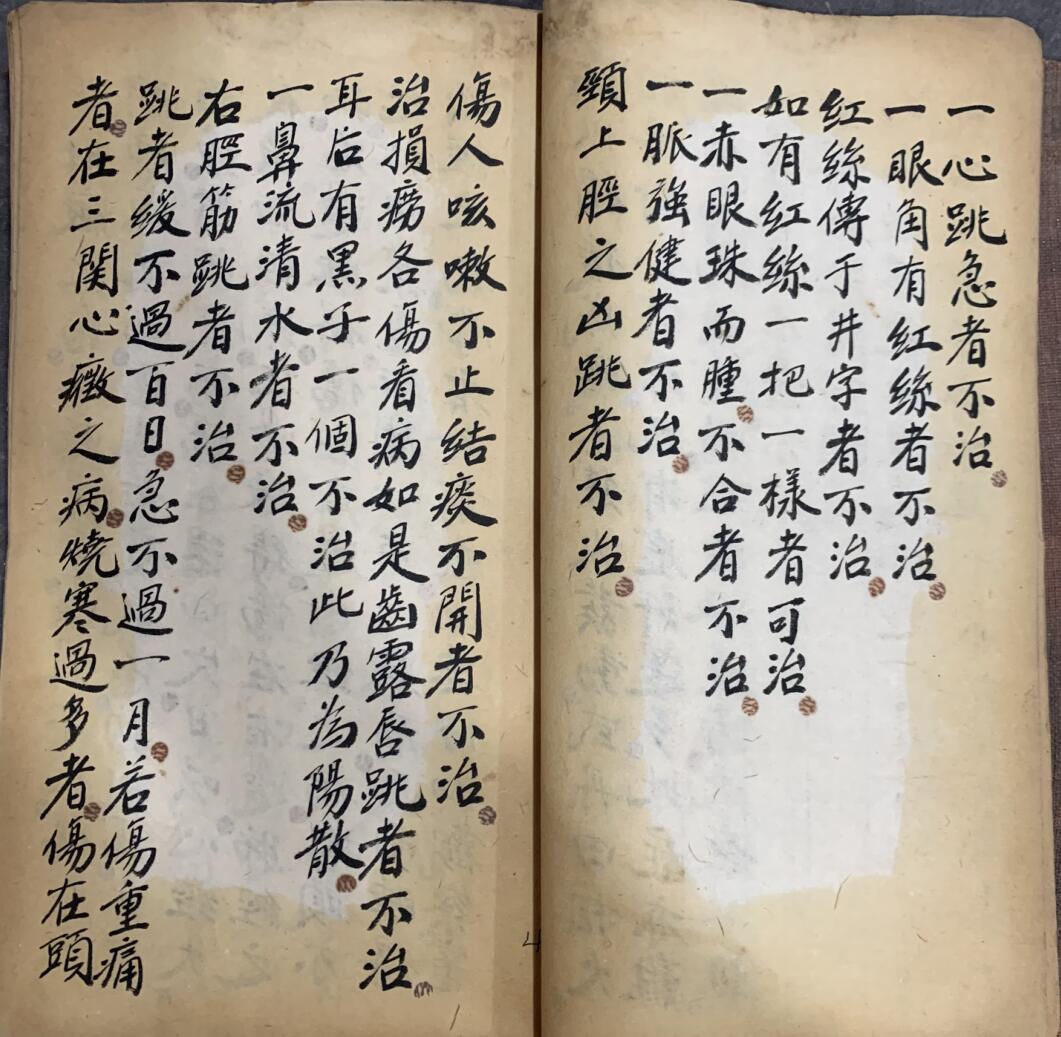 一心跳急者不治
一眼角有紅絲者不治
紅絲傳于井字者不治
如有紅絲一把一樣者可治
一赤眼珠而腫不合者不治
一脈強健者不治
頸上脛之凶跳者不治
傷人咳嗽不止結痰不開者不治
治損癆各傷看病如是齒露唇跳者不治
耳后有黑子一個不治此乃為陽散
一鼻流清水者不治
右脛筋跳者不治
跳者緩不過百日急不過一月若傷重痛
者在三関心癥之病燒寒過多者傷在頭